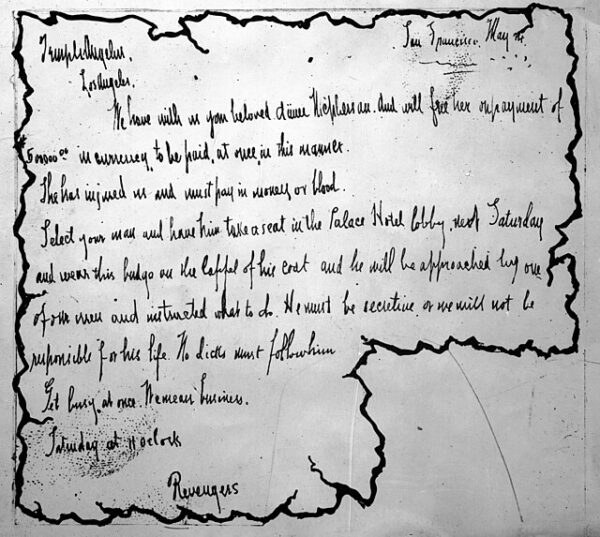 San Francisco. May
Temple Angelus.
Los Angeles.
We have with us your beloved Aimee McPherson. And will free her on payment of
$500000.00 in currency, to be paid, at once, in this manner.
She has injured us and must pay in money or blood.
Select your man and have him take a seat in the Palace Hotel lobby, next Saturday
and wear this badge on the lappel of his coat and he will be approached by one
of our men and instructed what to do. He must be secretive or we will not be
responsible for his life. No dicks must follow him
Get busy, at once. We mean business.
Saturday at 11 oclock
Revengers